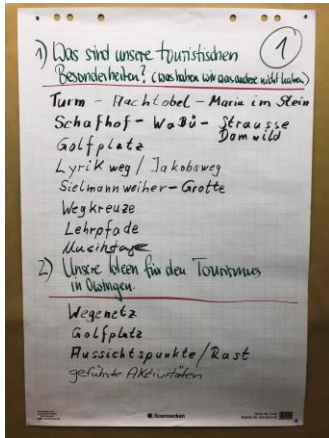 1
1) Was sind unsere touristischen
Besonderheiten? (was haben wir was andere nicht haben)
Turm - Nachtobel - Maria im Stein
Schafhof - WaBü - Strausse
Damwild
Golfplatz
Lyrikweg / Jakobsweg
Sielmannweiher - Grotte
Wegkreuze
Lehrpfade
Musiktage
2) Unsere Ideen für den Tourismus
in Owingen.
Wegenetz
Golfplatz
Aussichtspunkte / Rast
geführte Aktivitäten
Soennecken